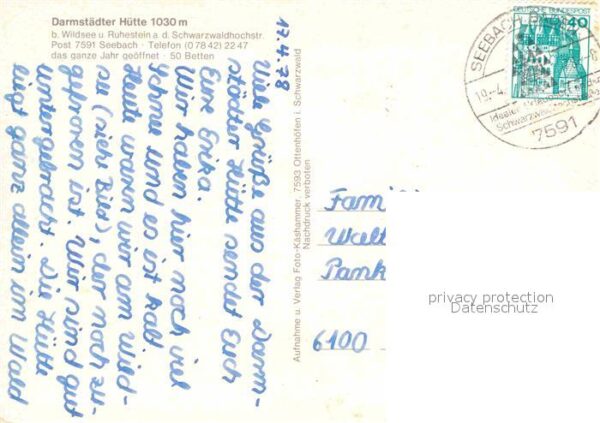 Darmstädter Hütte 1030 m
b. Wildsee u. Ruhestein a. d. Schwarzwaldhochstr.
Post 7591 Seebach · Telefon (0 78 42) 22 47
das ganze Jahr geöffnet · 50 Betten
17.4.78
Viele Grüße aus der Darm-
städter Hütte sendet Euch
Eure Erika.
Wir haben hier noch viel
Schnee und es ist kalt
Heute waren wir am Wild-
see (siehe Bild), der noch zu-
gefroren ist. Wir sind gut
untergebracht. Die Hütte
liegt ganz allein im Wald
Aufnahme u. Verlag Foto-Käshammer, 7593 Ottenhöfen i. Schwarzwald
Nachdruck verboten
DEUTSCHE BUNDESPOST
40
SEEBACH
19.-4.
7591
Fami
Walt
Pank
6100
privacy protection
Datenschutz